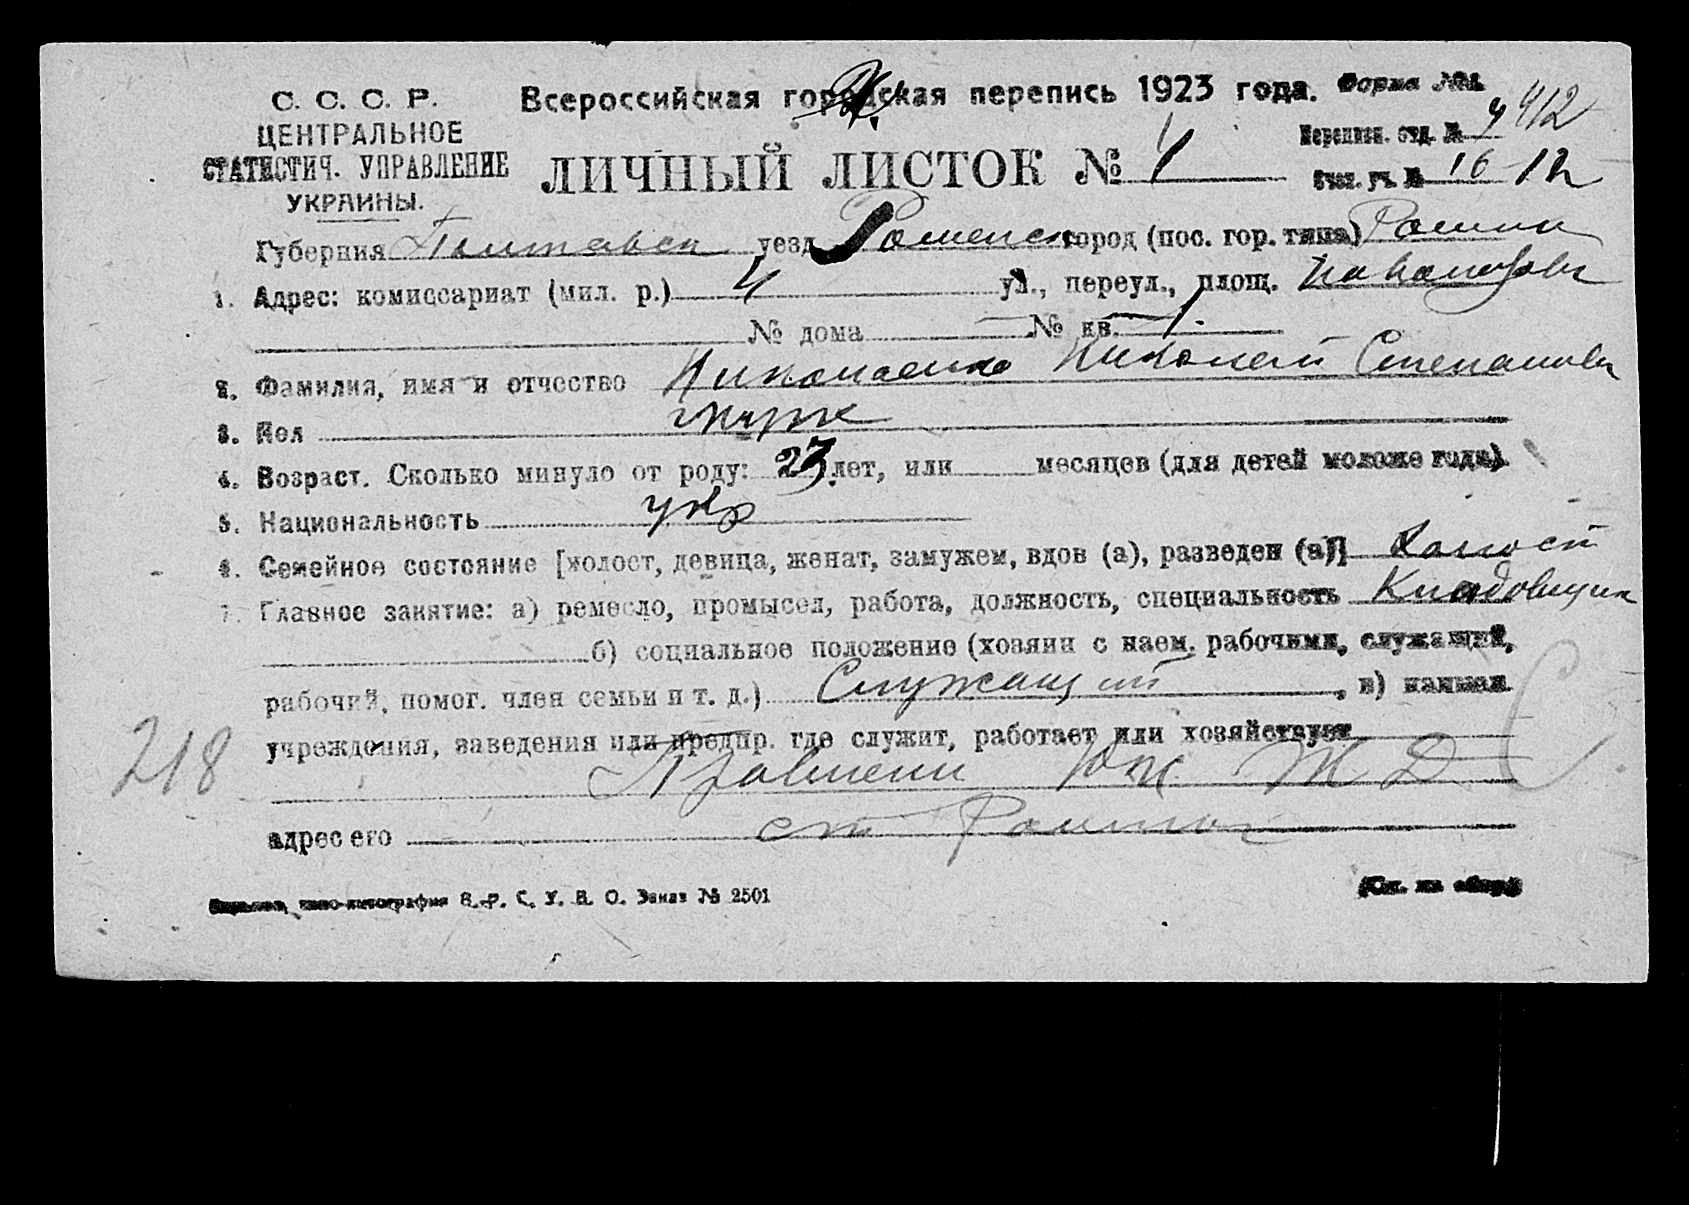 С. С. С. Р.
ЦЕНТРАЛЬНОЕ
СТАТИСТИЧ. УПРАВЛЕНИЕ
УКРАИНЫ.
Всероссийская городская перепись 1923 года.
Форма №1
Переписн. отд. № 4 412
ЛИЧНЫЙ ЛИСТОК № 4
Счетн. уч. № 16 12
Губерния Полтавск уезд Роменск город (пос. гор. типа) Ромны
1. Адрес: комиссариат (мил. р.) 4 ул., переул., площ.
№ дома — № кв. 1.
2. Фамилия, имя и отчество Николаенко Николай Степанови
3. Пол муж
4. Возраст. Сколько минуло от роду: 23 лет, или месяцев (для детей моложе года).
5. Национальность укр
6. Семейное состояние [холост, девица, женат, замужем, вдов (а), разведен (а)] Холост
7. Главное занятие: а) ремесло, промысел, работа, должность, специальность Кладовщик
б) социальное положение (хозяин с наем. рабочими, служащий,
рабочий, помог. член семьи и т. д.) Служащий, в) наимен.
учреждения, заведения или предпр. где служит, работает или хозяйствует
218
Правления Юж Ж Д
адрес его ст Ромны
типо-литография В.-Р. С. У. В. О. Заказ № 2501
(См. на обор.)